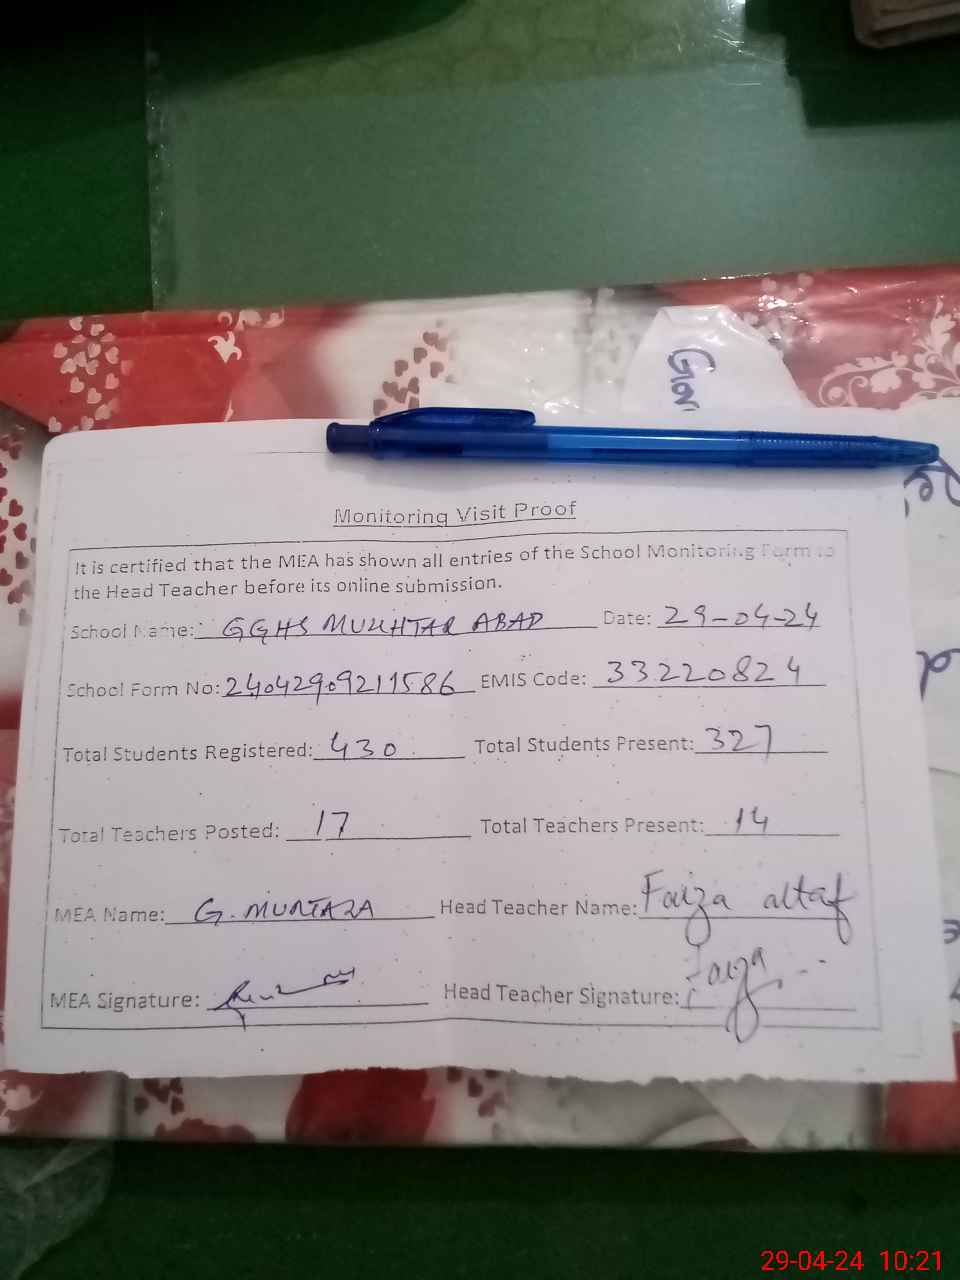 Gov
Monitoring Visit Proof
It is certified that the MEA has shown all entries of the School Monitoring Form to
the Head Teacher before its online submission.
School Name: GGHS MUKHTAR ABAD Date: 29-04-24
School Form No: 24042909211586 EMIS Code: 33220824
Total Students Registered: 430 Total Students Present: 327
Total Teachers Posted: 17 Total Teachers Present: 14
MEA Name: G. MURTAZA Head Teacher Name: Faiza altaf
MEA Signature: Head Teacher Signature: Faiza
29-04-24 10:21